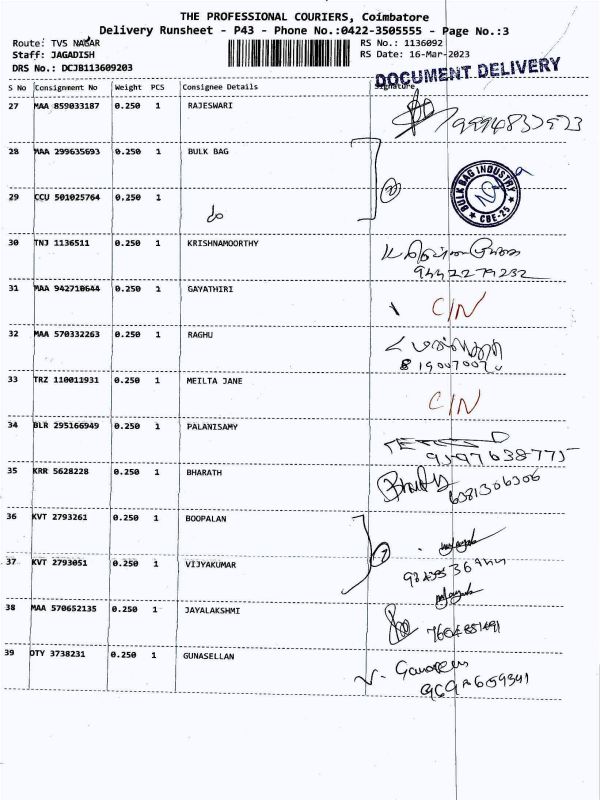 THE PROFESSIONAL COURIERS, Coimbatore
Delivery Runsheet - P43 - Phone No.:0422-3505555 - Page No.:3
Route: TVS NAGAR RS No.: 1136092
Staff: JAGADISH RS Date: 16-Mar-2023
DRS No.: DCJB113609203
DOCUMENT DELIVERY
S No Consignment No Weight PCS Consignee Details Signature
27 MAA 859033187 0.250 1 RAJESWARI
28 MAA 299635693 0.250 1 BULK BAG
BULK BAG INDUSTRY
★ CBE-25 ★
29 CCU 501025764 0.250 1
do
30 TNJ 1136511 0.250 1 KRISHNAMOORTHY
9442279232
31 MAA 942710644 0.250 1 GAYATHIRI C/N
32 MAA 570332263 0.250 1 RAGHU
33 TRZ 110011931 0.250 1 MEILTA JANE C/N
34 BLR 295166949 0.250 1 PALANISAMY
9597638775
35 KRR 5628228 0.250 1 BHARATH
6381306306
36 KVT 2793261 0.250 1 BOOPALAN
37 KVT 2793051 0.250 1 VIJYAKUMAR
38 MAA 570652135 0.250 1 JAYALAKSHMI
39 OTY 3738231 0.250 1 GUNASELLAN